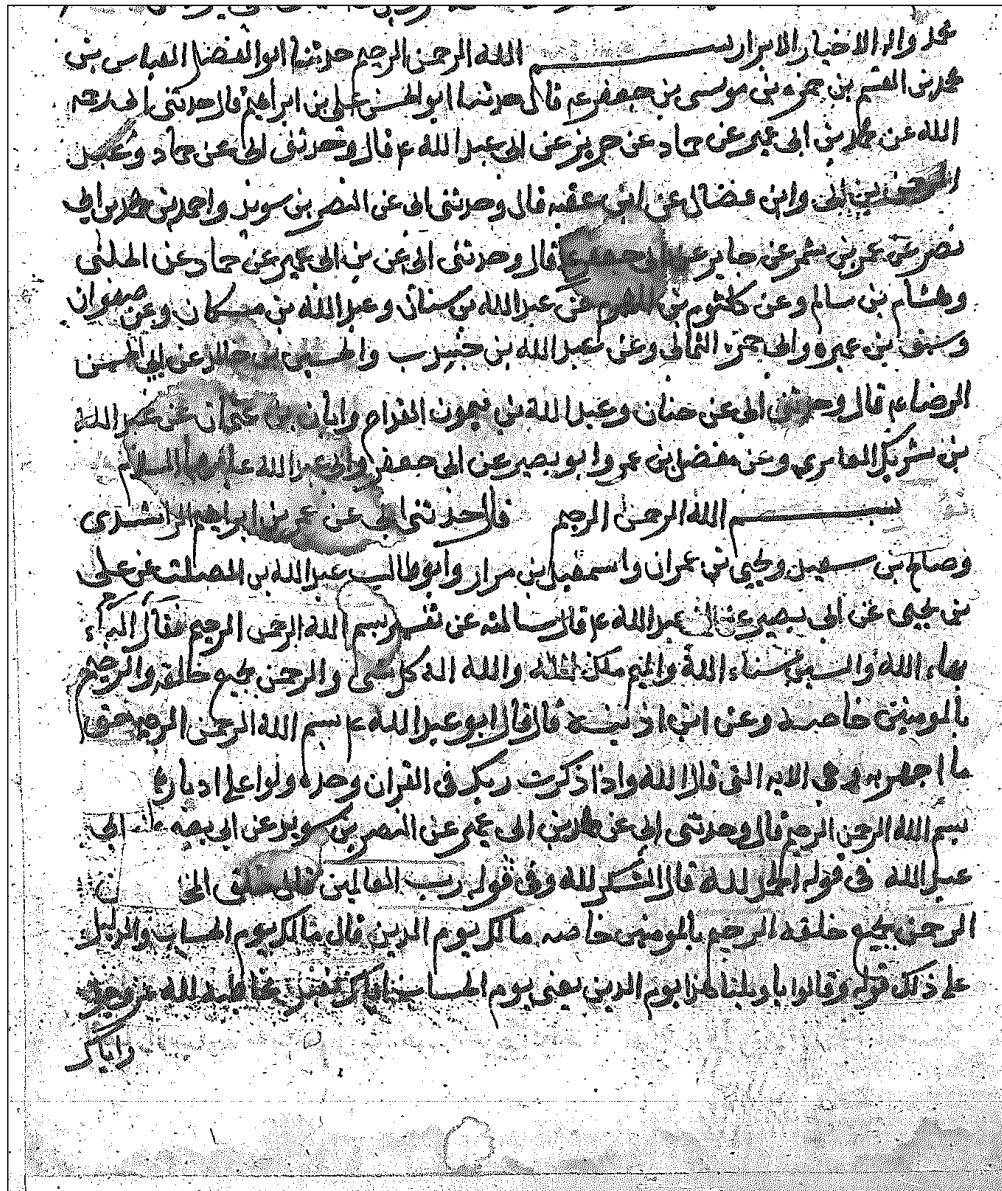 محمد واله الاخيار الابرار بسم الله الرحمن الرحيم حدثنا ابو الفضل العباس بن
محمد بن القسم بن حمزه بن موسى بن جعفر ع قال حدثنا ابو الحسن علي بن ابراهيم قال حدثنى ابى رحمه
الله عن محمد بن ابى عمير عن حماد عن حريز عن ابى عبد الله ع قال وحدثنى ابى عن حماد وعبد
الرحمن بن ابى وابن فضال عن ابن عقبه قال وحدثنى ابى عن النضر بن سويد واحمد بن محمد بن ابى
نصر عن عمر بن شمر عن جابر عن ابى جعفر ع قال وحدثنى ابى عن بن ابى عمير عن حماد عن الحلبى
وهشام بن سالم وعن كلثوم بن عن عبد الله بن سنان وعبد الله بن مسكان وعن صفوان
وسيف بن عميره وابى حمزه الثمالى وعن عبد الله بن جندب والحسين بن خالد عن ابى الحسن
الرضا ع قال وحدثنى ابى عن حنان وعبد الله بن ميمون القداح وابان بن عثمان عن عبد الله
بن شريك العامري وعن مفضل بن عمر وابو بصير عن ابى جعفر وابى عبد الله عليهما السلام
بسم الله الرحمن الرحيم قال حدثنى ابى عن عمر بن ابراهيم الراشدى
وصالح بن سعيد ويحيى بن عمران واسمعيل بن مرار وابو طالب عبد الله بن الصلت عن على
بن يحيى عن ابى بصير عن ابى عبد الله ع قال سالته عن تفسير بسم الله الرحمن الرحيم فقال الباء
بهاء الله والسين سناء الله والميم ملك الله والله اله كل شى والرحمن بجميع خلقه والرحيم
بالمومنين خاصه وعن ابن اذينه قال قال ابو عبد الله ع بسم الله الرحمن الرحيم حق
ما اجهر به وهى الايه التى قال الله واذا ذكرت ربك فى القران وحده ولوا على ادبار
بسم الله الرحمن الرحيم قال وحدثنى ابى عن محمد بن ابى عمير عن النضر بن سويد عن ابى بصير ابى
عبد الله فى قوله الحمد لله قال الشكر لله وفى قوله رب العالمين قال خلق
الرحمن بجميع خلقه الرحيم بالمومنين خاصه مالك يوم الدين قال مالك يوم الحساب والدليل
على ذلك قوله وقالوا يا ويلنا هذا يوم الدين يعنى يوم الحساب اياك نعبد مخاطبه لله عز وجل
واياك